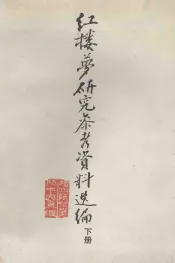 红楼梦研究参考資料选编
下册